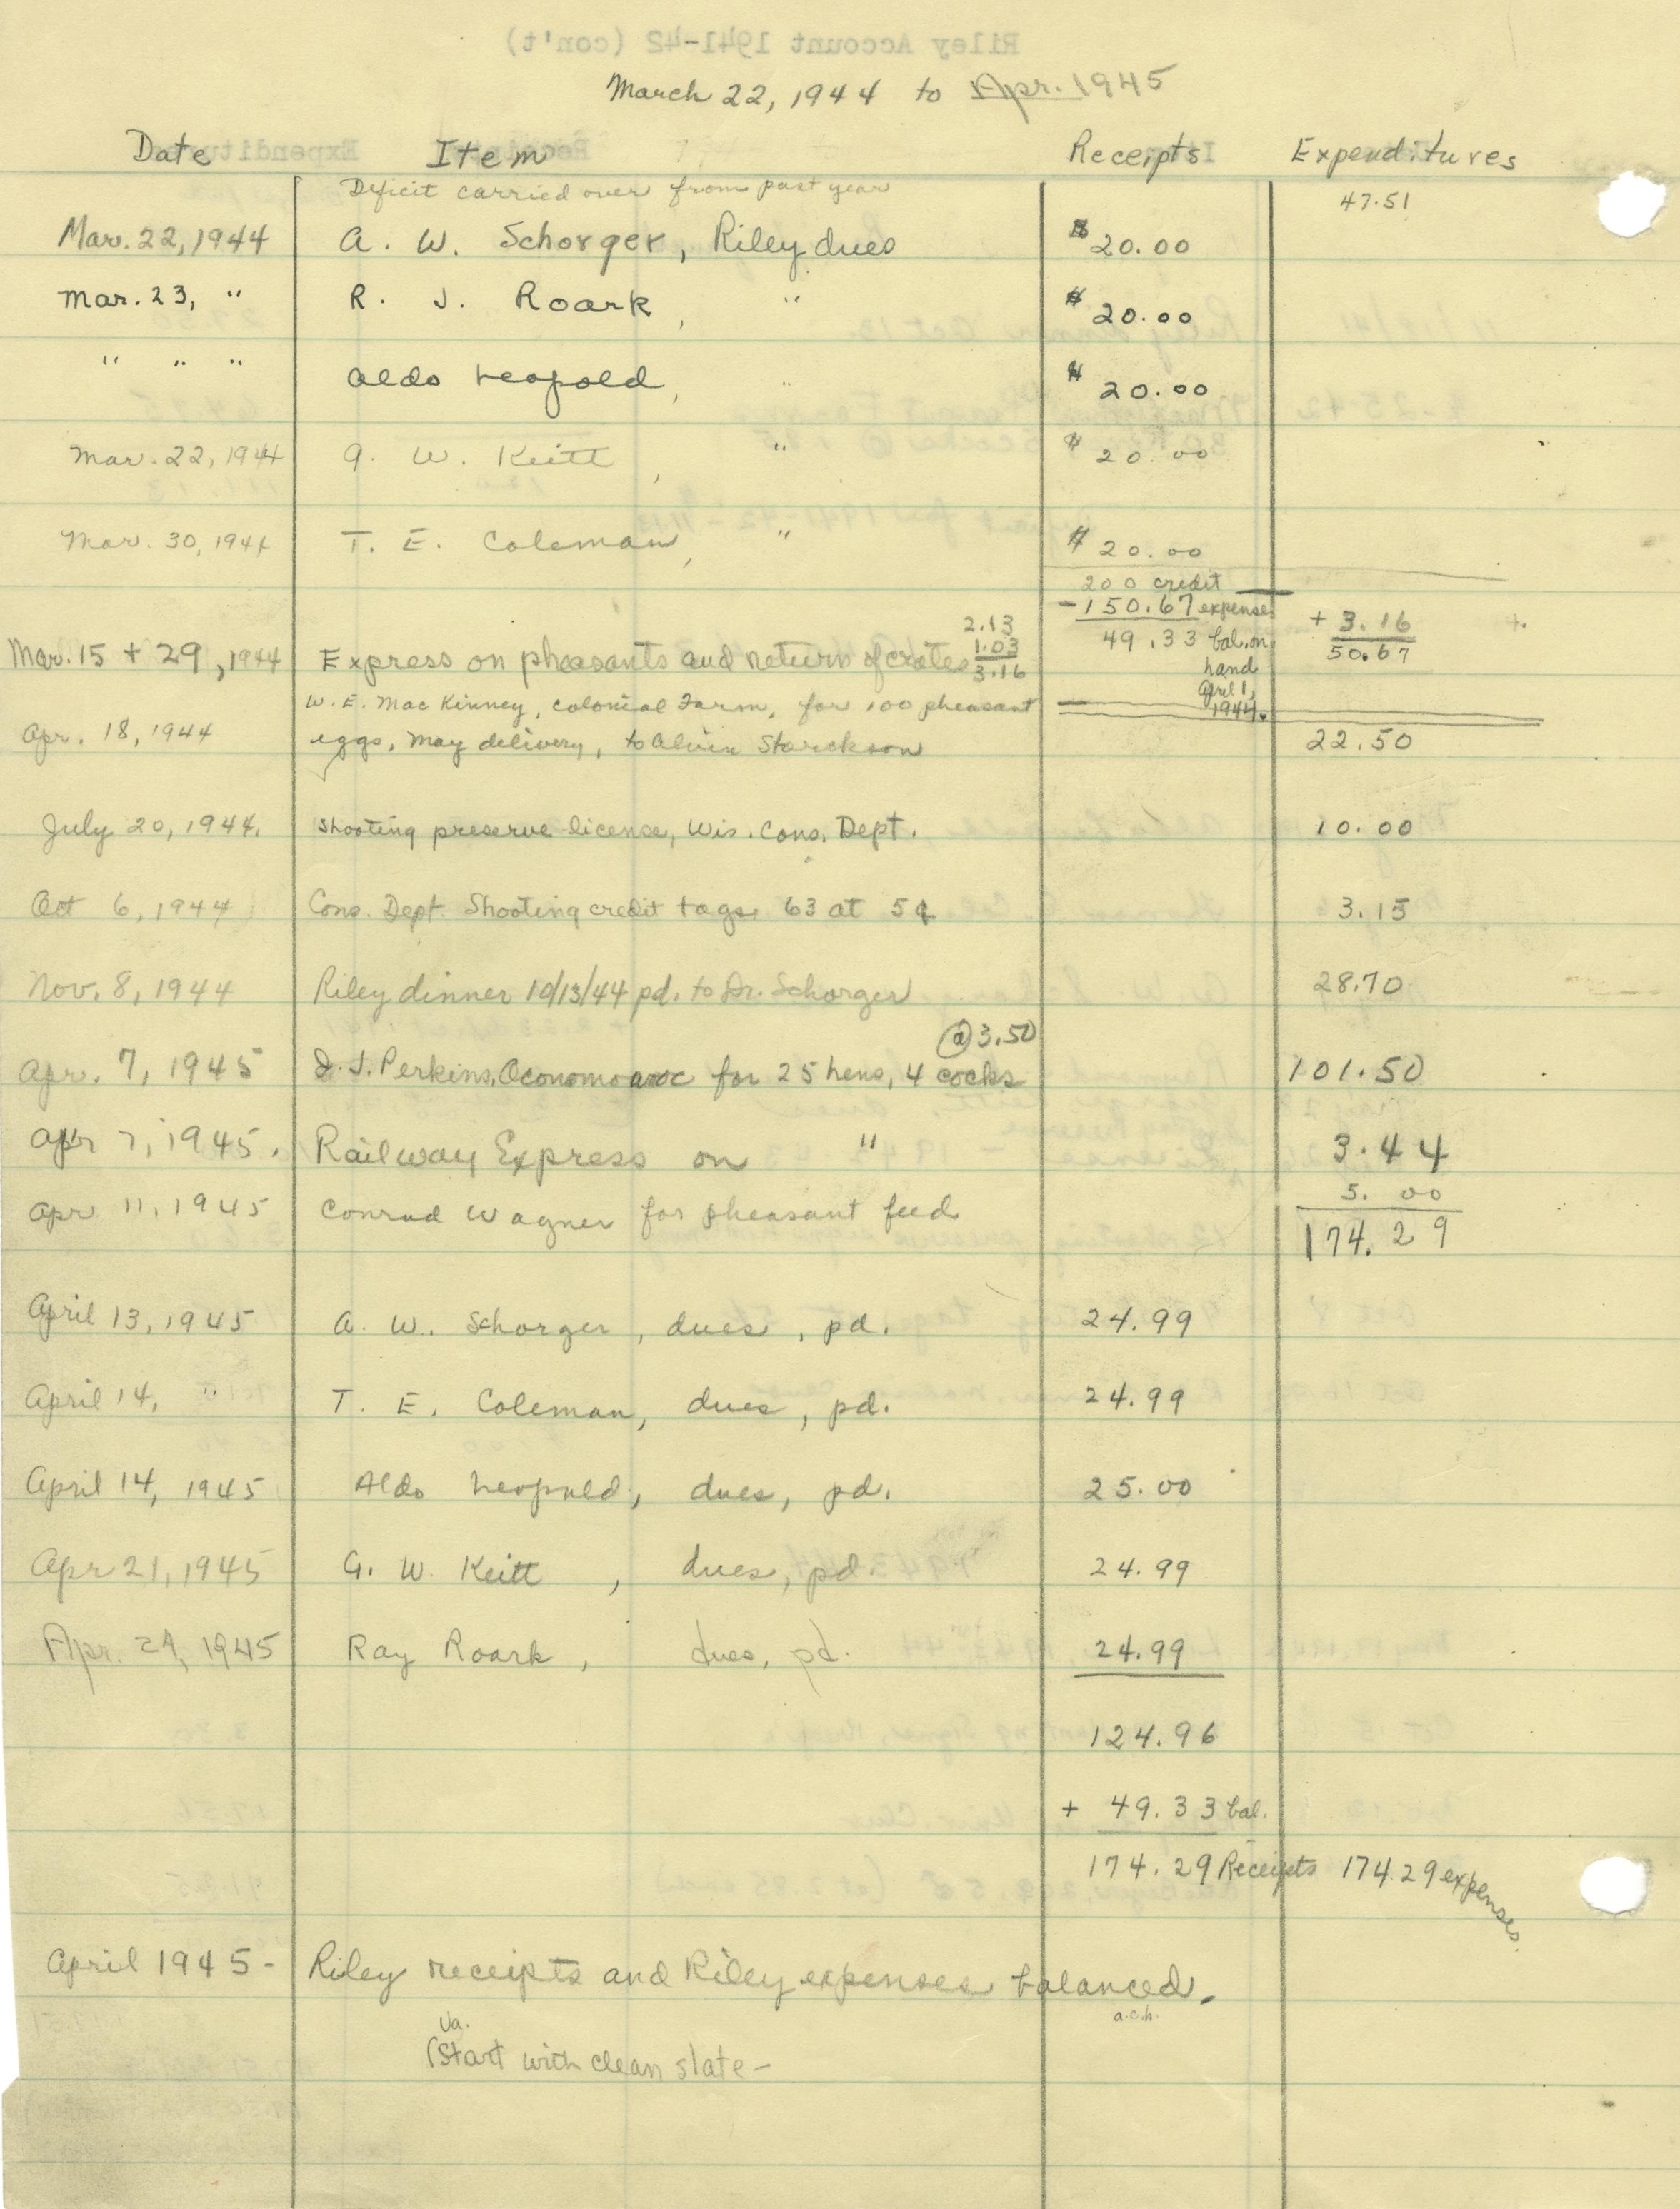 Riley Account 1941-42 (con't)
March 22, 1944 to Apr. 1945
Date Item Receipts Expenditures
Deficit carried over from past year 47.51
Mar. 22, 1944 A. W. Schorger, Riley dues $ 20.00
Mar. 23, " R. J. Roark, " $ 20.00
" " " Aldo Leopold, " $ 20.00
Mar. 22, 1944 G. W. Keitt, " $ 20.00
Mar. 30, 1944 T. E. Coleman, " $ 20.00
200 credit
-150.67 expenses
49.33 bal. on
hand
April 1,
1944.
2.13
1.03
3.16
+ 3.16
50.67
Mar. 15 + 29, 1944 Express on pheasants and return of crates
W. E. Mac Kinney, Colonial Farm, for 100 pheasant
Apr. 18, 1944 eggs, May delivery, to Alvin Starckson 22.50
July 20, 1944. Shooting preserve license, Wis. Cons. Dept. 10.00
Oct 6, 1944 Cons. Dept. Shooting credit tags. 63 at 5¢ 3.15
Nov. 8, 1944 Riley dinner 10/13/44 pd. to Dr. Schorger 28.70
@ 3.50
Apr. 7, 1945 J. Perkins, Oconomowoc for 25 hens, 4 cocks 101.50
Apr 7, 1945. Railway Express on " 3.44
Apr 11, 1945 Conrad Wagner for pheasant feed 5.00
174.29
April 13, 1945 A. W. Schorger, dues, pd. 24.99
April 14, " T. E. Coleman, dues, pd. 24.99
April 14, 1945 Aldo Leopold, dues, pd. 25.00
Apr 21, 1945 G. W. Keitt, dues, pd. 24.99
Apr. 1945 Ray Roark, dues, pd. 24.99
124.96
+ 49.33 bal.
174.29 Receipts 174.29 expenses.
April 1945- Riley receipts and Riley expenses balanced.
a.c.h.
(Start with clean slate-